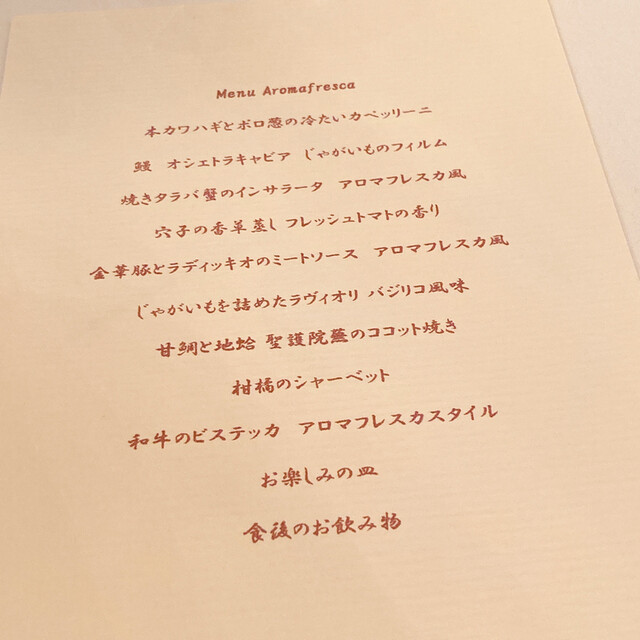 Menu Aromafresca
本カワハギとポロ葱の冷たいカペッリーニ
鰻 オシェトラキャビア じゃがいものフィルム
焼きタラバ蟹のインサラータ アロマフレスカ風
穴子の香草蒸し フレッシュトマトの香り
金華豚とラディッキオのミートソース アロマフレスカ風
じゃがいもを詰めたラヴィオリ バジリコ風味
甘鯛と地蛤 聖護院蕪のココット焼き
柑橘のシャーベット
和牛のビステッカ アロマフレスカスタイル
お楽しみの皿
食後のお飲み物